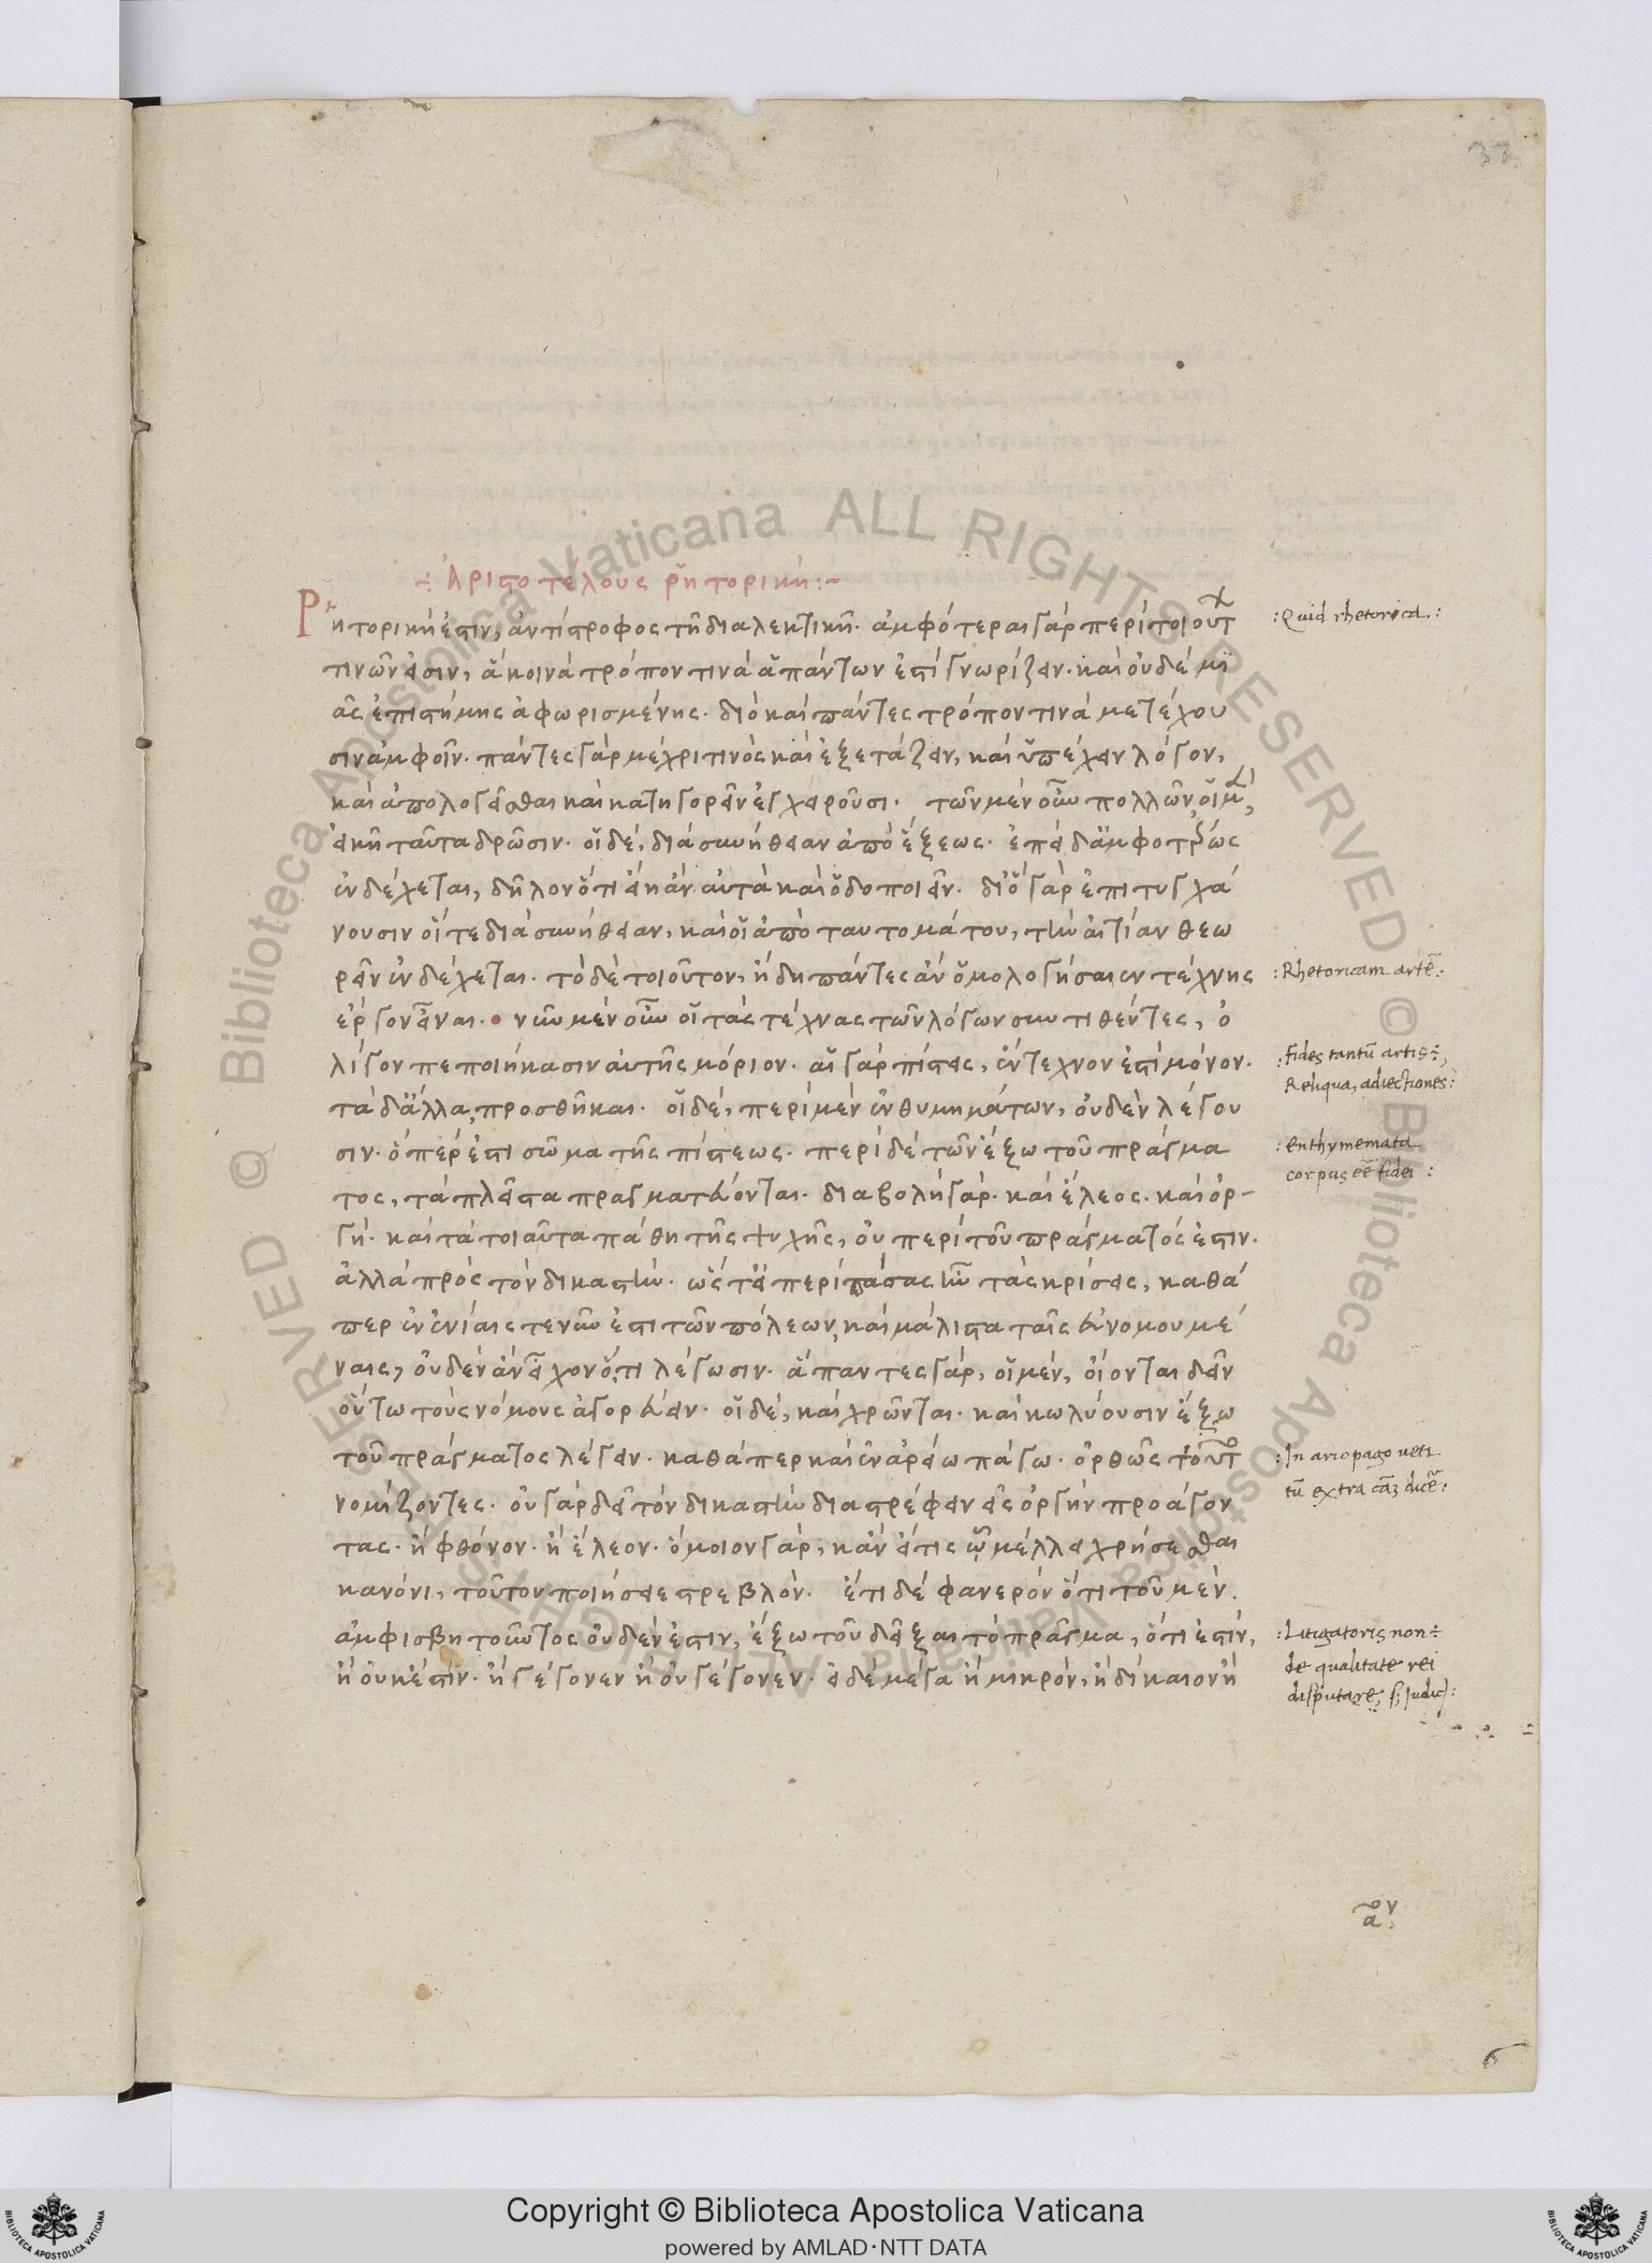 33
÷ Ἀριστοτέλους ῥητορική:~
Ῥητορική ἐστιν, ἀντίστροφος τῆ διαλεκτικῆ. ἀμφότεραι γάρ περί τοιούτ
τινῶν εἰσιν, ἅ κοινά τρόπον τινά ἁπάντων ἐστί γνωρίζειν. καί οὐδέ μι
ᾶς ἐπιστήμης ἀφωρισμένης. διό καί πάντες τρόπον τινά μετέχου
σιν ἀμφοῖν. πάντες γάρ μέχρι τινός καί ἐξετάζειν, καί ὑπέχειν λόγον,
καί ἀπολογεῖσθαι καί κατηγορεῖν ἐγχειροῦσι. τῶν μέν οὖν πολλῶν, οἱ μ,
εἰκῆ ταῦτα δρῶσιν. οἱ δέ, διά συνήθειαν ἀπό ἕξεως. ἐπεί δ' ἀμφοτρώς
ἐνδέχεται, δῆλον ὅτι εἴη ἄν αὐτά καί ὁδοποιεῖν. δι' ὅ γάρ ἐπιτυγχά
νουσιν οἵ τε διά συνήθειαν, καί οἱ ἀπό ταυτομάτου, τήν αἰτίαν θεω
ρεῖν ἐνδέχεται. τό δέ τοιοῦτον, ἤδη πάντες ἄν ὁμολογήσαιεν τέχνης
ἔργον εἶναι. • νῦν μέν οὖν οἱ τάς τέχνας τῶν λόγων συντιθέντες, ὀ
λίγον πεποιήκασιν αὐτῆς μόριον. αἱ γάρ πίστεις, ἔντεχνον ἐστί μόνον.
τά δ' ἄλλα, προσθῆκαι. οἱ δέ, περί μέν ἐνθυμημάτων, οὐδέν λέγου
σιν. ὅπερ ἐστί σῶμα τῆς πίστεως. περί δέ τῶν ἔξω τοῦ πράγμα
τος, τά πλεῖστα πραγματεύονται. διαβολή γάρ. καί ἔλεος. καί ὀρ-
γή. καί τά τοιαῦτα πάθη τῆς ψυχῆς, οὐ περί τοῦ πράγματός ἐστιν.
ἀλλά πρός τόν δικαστήν. ὥστ' εἰ περί πάσας ἦν τάς κρίσεις, καθά
περ ἐν ἐνίαις τε νῦν ἐστι τῶν πόλεων, καί μάλιστα ταῖς εὐνομουμέ
ναις, οὐδέν ἄν εἶχον ὅ,τι λέγωσιν. ἅπαντες γάρ, οἱ μέν, οἴονται δεῖν
οὕτω τούς νόμους ἀγορεύειν. οἱ δέ, καί χρῶνται. καί κωλύουσιν ἔξω
τοῦ πράγματος λέγειν. καθάπερ καί ἐν ἀρείω πάγω. ὀρθῶς τοῦτο
νομίζοντες. οὐ γάρ δεῖ τόν δικαστήν διαστρέφειν εἰς ὀργήν προάγον
τας. ἤ φθόνον. ἤ ἔλεον. ὅμοιον γάρ, κἄν εἴ τις ᾧ μέλλει χρήσεσθαι
κανόνι, τοῦτον ποιήσειε στρεβλόν. ἔτι δέ φανερόν ὅτι τοῦ μέν
ἀμφισβητοῦντος οὐδέν ἐστιν, ἔξω τοῦ δεῖξαι τό πρᾶγμα, ὅτι ἐστίν,
ἤ οὐκ ἐστίν. ἤ γέγονεν ἤ οὐ γέγονεν. εἰ δέ μέγα ἤ μικρόν, ἤ δίκαιον ἤ
:Quid rhetorica:
:Rhetoricam artē:
:fides tantū artis÷,
Reliqua, adiectiones:
:enthymemata
corpus eē fidei:
:In ariopago veti
tū extra cāȝ dicē:
:Litigatoris non÷
de qualitate rei
disputare,
6
© Biblioteca Apostolica Vaticana ALL RIGHTS RESERVED
Copyright © Biblioteca Apostolica Vaticana
powered by AMLAD·NTT DATA
BIBLIOTECA APOSTOLICA VATICANA
BIBLIOTECA APOSTOLICA VATICANA